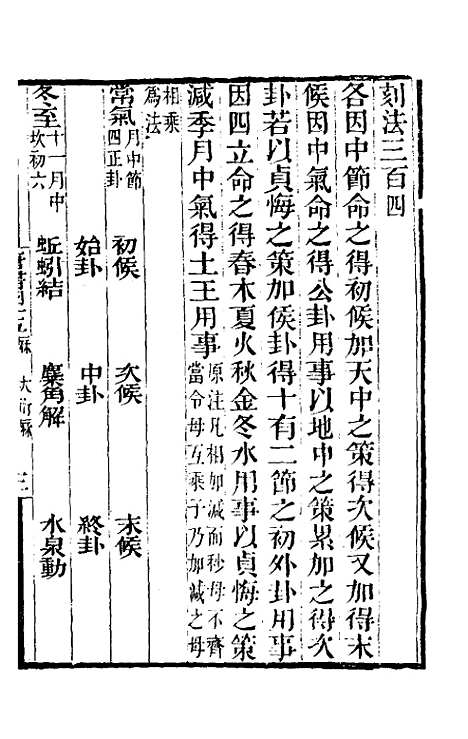 刻法三百四
各因中節命之得初候加天中之策得次候又加得末
候因中氣命之得公卦用事以地中之策累加之得次
卦若以貞悔之策加候卦得十有二節之初外卦用事
因四立命之得春木夏火秋金冬水用事以貞悔之策
減季月中氣得土王用事原注凡相加減而秒母不齊
當令母互乘子乃加減之母
相乘
爲法
常氣月中節
四正卦
初候 次候 末候
始卦 中卦 終卦
冬至十一月中
坎初六
蚯蚓結 麋角解 水泉動
大衍厤 三